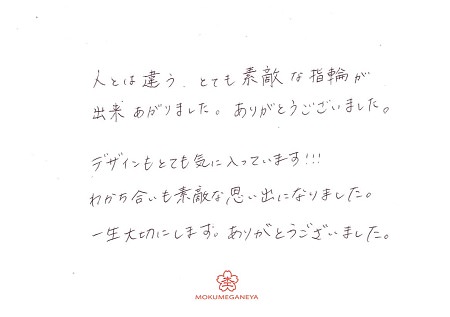 人とは違う、とても素敵な指輪が
出来あがりました。ありがとうございました。
デザインもとても気に入っています!!!
わかち合いも素敵な思い出になりました。
一生大切にします。ありがとうございました。
MOKUMEGANEYA